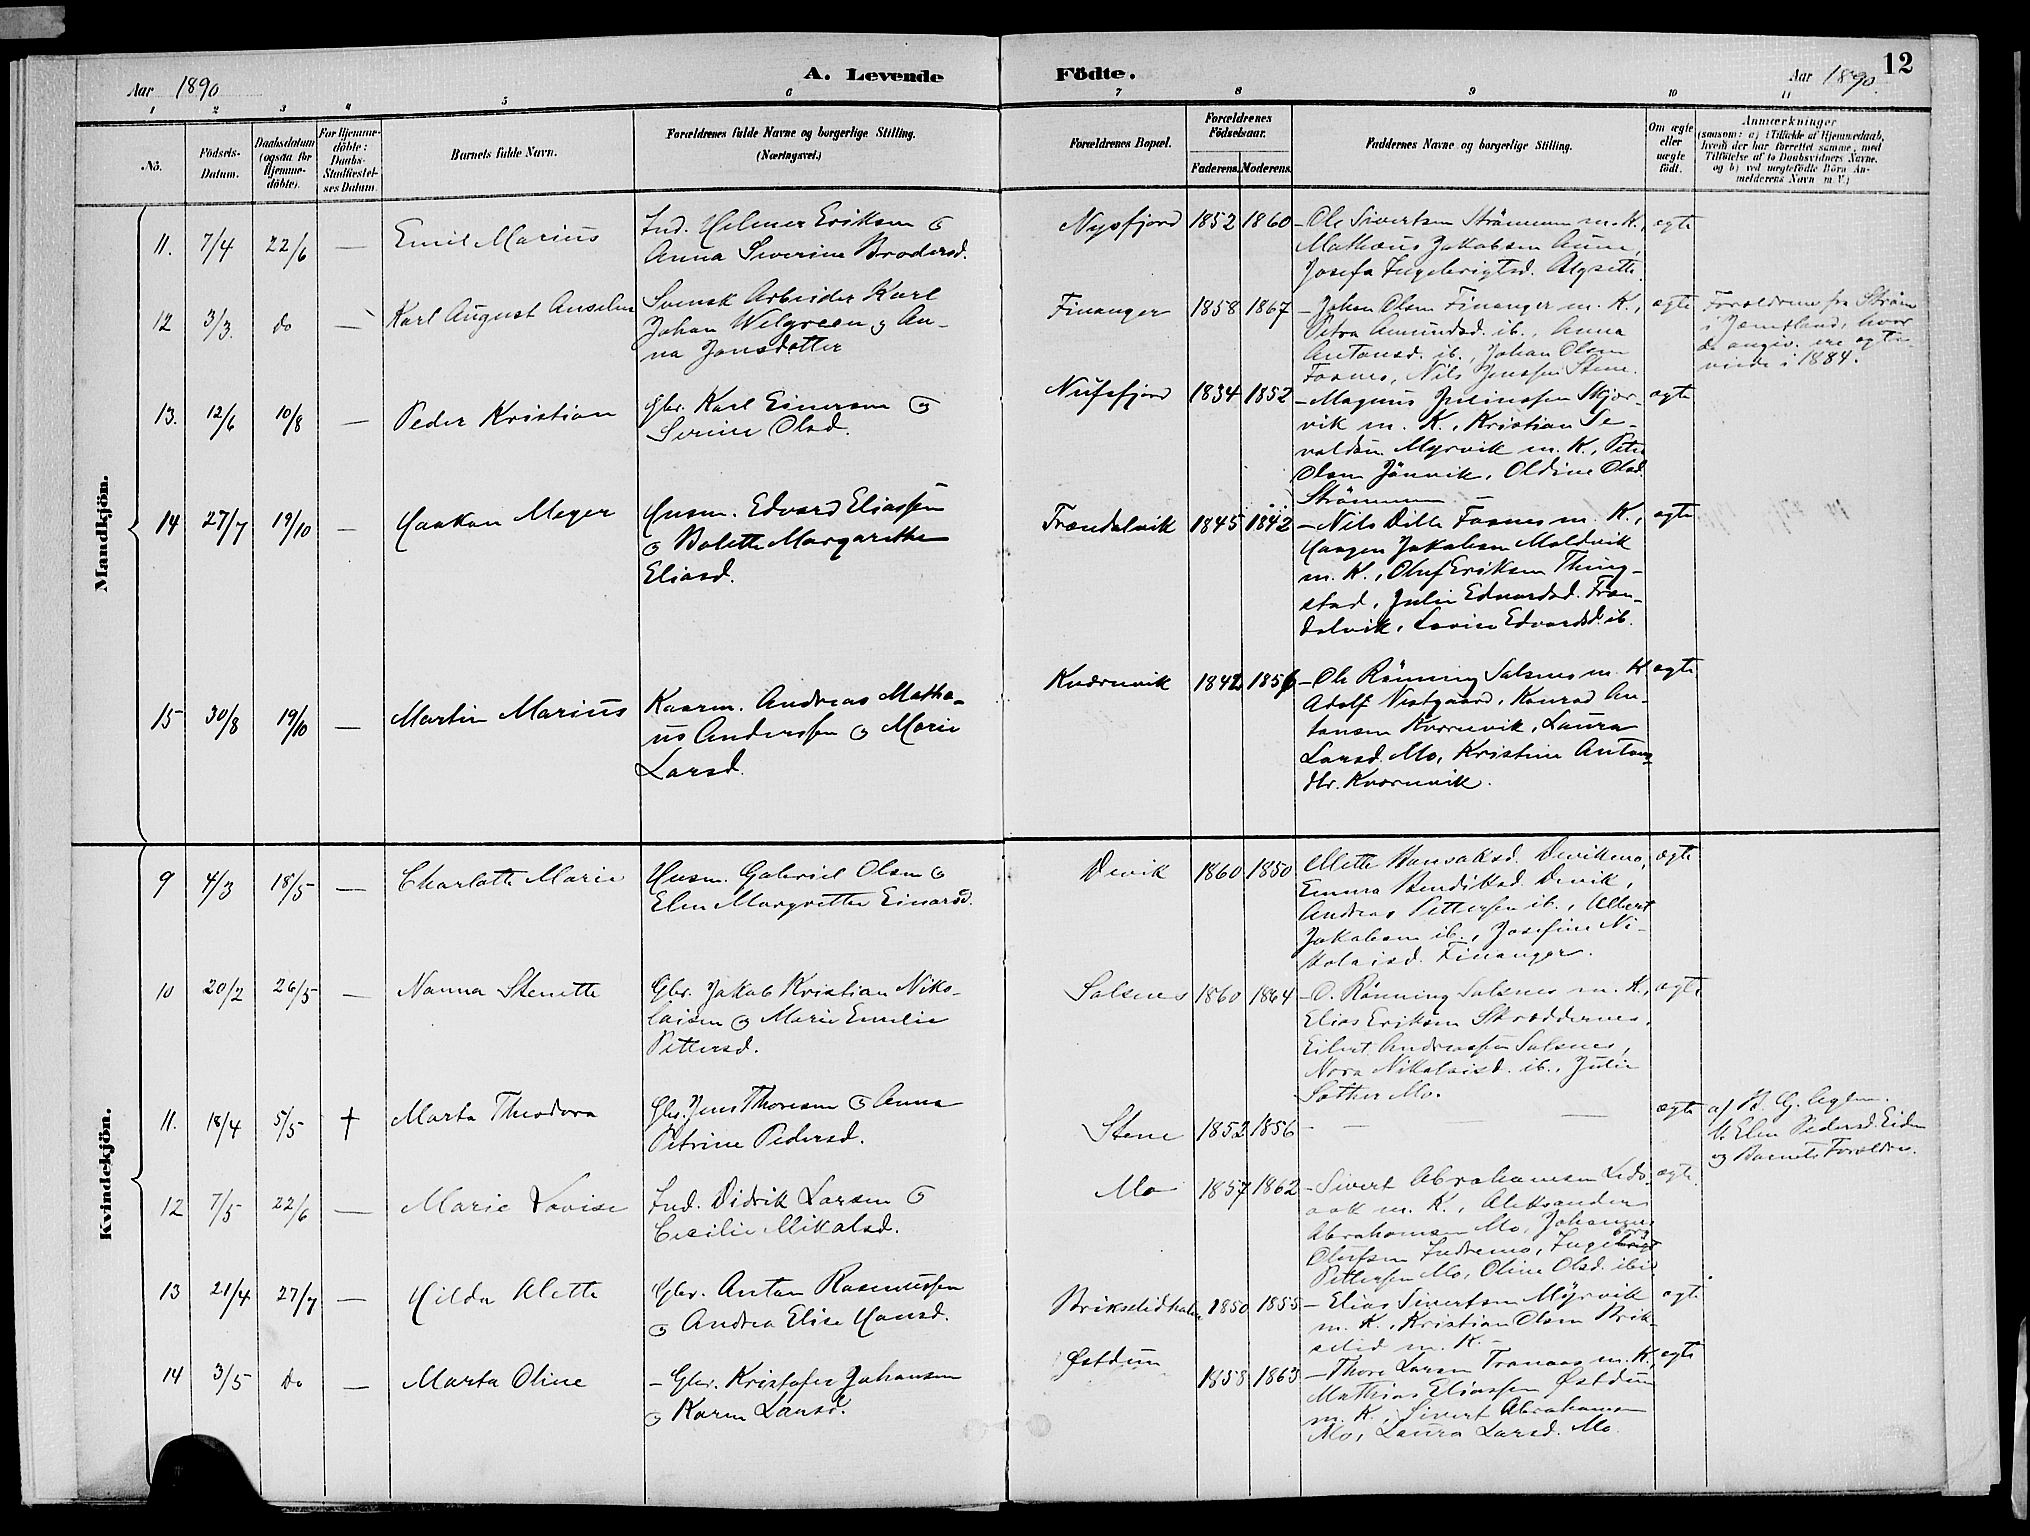 12
Aar 1890
A. Levende Födte.
Aar 1890.
1 2 3 4 5 6 7 8 9 10 11
No.
Födsels-Datum.
Daabsdatum (ogsaa for Hjemmedöbte).
For Hjemmedöbte: Daabs-Stadfæstelses Datum.
Barnets fulde Navn.
Forældrenes fulde Navne og borgerlige Stilling. (Næringsvei.)
Forældrenes Bopæl.
Forældrenes Födselsaar.
Faderens. Moderens.
Faddernes Navne og borgerlige Stilling.
Om ægte eller uægte födt.
Anmærkninger
(saasom: a) i Tilfælde af Hjemmedaab, hvem der har forrettet samme, med Tilföielse af to Daabsvidners Navne, og b) ved uægtefödte Börn Anmelderens Navn m. V.)
Mandkjön.
11. 7/4 22/6 — Emil Marius
Ind. Helmer Eriksen &
Anna Severine Brodersd.
Nufsfjord 1852 1860
— Ole Sivertsen Strömmen m. K.,
Mathæus Jakobsen Aune,
Josefa Ingebrigtsd.
ægte
12 3/3. do — Karl August Anselm
Svensk Arbeider Karl
Johan Welgreen & An-
na Jonsdatter
Finanger 1858 1867
— Johan Olsen Finanger m. K.,
Petra Amundsd. ib., Anna
Antonsd. ib., Johan Olsen
Fosnes, Nils Jonssen Stene.
ægte
Forældrene fra Ström
i Jæmtland, hvor
de angiv. ere ægte-
viede i 1884.
13. 12/6 10/8 — Peder Kristian
Gbr. Karl Einersen &
Serine Olsd.
Nufsfjord 1834 1852
— Magnus Justinssen Skjær-
vik m. K., Kristian Se-
valdsen Myrvik m. K., Peter
Olsen Jönvik, Oldine Olsd.
Strömmen
ægte
14 27/7 19/10 — Haakon Meyer
Husm. Edvard Eliassen
& Bolette Margarethe
Eliasd.
Trændalvik 1845 1842
— Nils Dille Fosnes m. K.,
Haagen Jakobsen Moldvik
m. K., Oluf Eriksen Thing-
stad, Julie Edvardsd. Træn-
dalvik, Lovise Edvardsd. ib.
ægte
15 30/8 19/10 — Martin Marius
Kaarm. Andreas Mathæ-
us Anderssen & Marie
Larsd.
Kværnvik 1842 1856
— Ole Rönning Salsnes m. K
Adolf Vestgaard, Konrad An-
tonsen Kværnvik, Laura
Larsd. Mo, Kristine Antons-
dtr. Kværnvik.
ægte
Kvindekjön.
9 4/3 18/5 — Charlotte Marie
Husm. Gabriel Olsen &
Elen Margrethe Einarsd.
Devik 1860 1850
Mette Devikmo,
Emma Bendiksd. Devik,
Andreas Pettersen ib., Albert
Jakobsen ib., Josefine Ni-
kolaisd. Finanger.
ægte
10 20/2 26/5 — Nanna Stenette
Gbr. Jakob Kristian Niko-
laisen & Marie Emelie
Pettersd.
Salsnes 1860 1864
— O. Rönning Salsnes m. K.,
Elias Eriksen Skræddernes,
Eilert Andreassen Salsnes,
Nora Nikolaisd. ib., Julie
Sather Mo.
ægte
11. 18/4 5/5 † Marta Theodora
Gbr. Jens Thoresen & Anna
Petrine Pedersd.
Stene 1852 1856
— — — —
ægte
af B. G.
V. Elen Pedersd. Eidem
og Barnets Forældre.
12 7/5 22/6 — Marie Lovise
Ind. Didrik Larsen &
Cecilie Mikalsd.
Mo 1857 1862
— Sivert Abrahamsen Leds-
aak m. K., Aleksander
Abrahamsen Mo, Johannes
Olufsen Indremo, Ingeborg
Pettersen Mo, Oline Olsd. ibid.
ægte.
13 21/4 27/7 — Hilda Alette
Gbr. Anton Rasmussen
& Andrea Elise Hansd.
Brikselidhalm 1850 1855
— Elias Sivertsen Myrvik
m. K., Kristian Olsen Brik-
selid m. K. —
ægte.
14 3/5 do — Marta Oline
— Gbr. Kristofer Johansen
& Karen Larsd.
Østduun 1858 1863
— Thore Larsen Tranaas m. K.,
Mathias Eliassen Østduun
m. K., Sivert Abrahamsen
Mo, Laura Larsd. Mo.
ægte